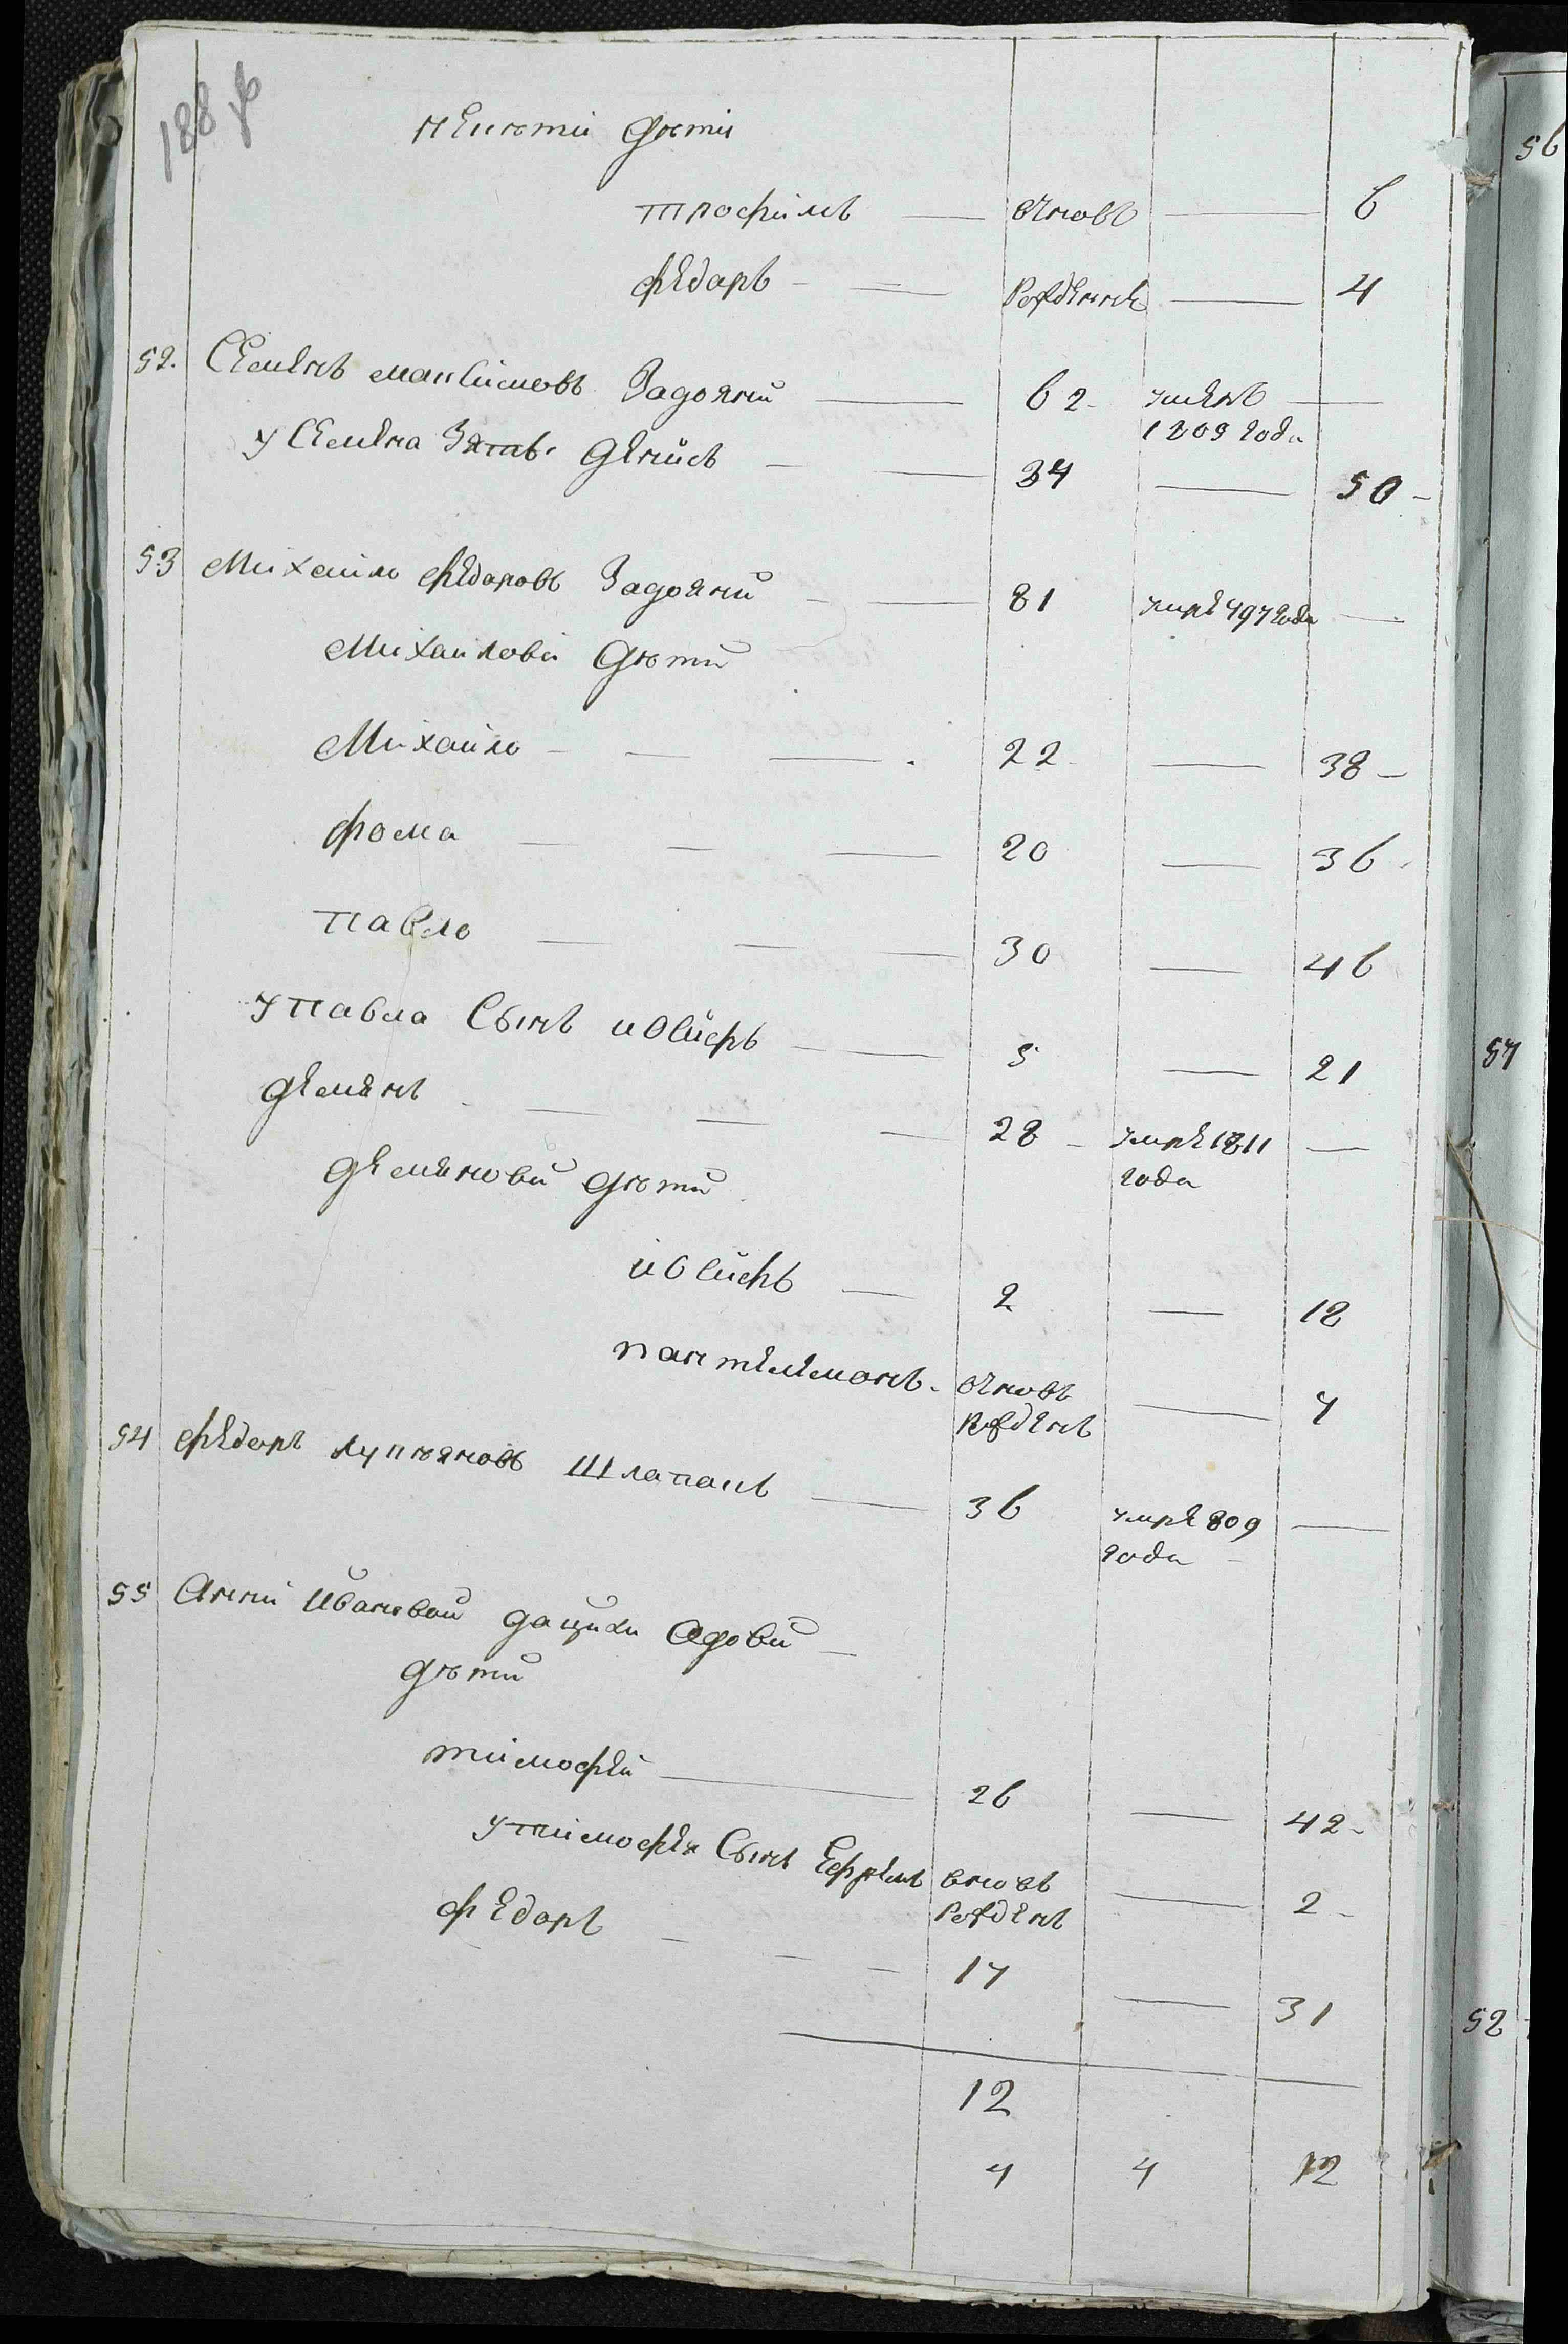 188 об
дети
трофимъ — вновъ — 6
федаръ — рождение — 4
52. Семенъ максимовъ Задояний — 62 умеръ —
1809 года
у Семена зять денисъ — 34 — 50
53 Михаило федаровъ Задояний — 81 умре 797 года —
Михаиловы дети
Михаило — 22 — 38
фома — 20 — 36
павло — 30 — 46
у павла Сынъ иосифъ — 5 — 21
демянъ — 28 умре 1811 —
года
демяновы дети
иосифъ — 2 — 18
пантелемонъ вновъ — 7
рожденъ
54 федоръ лупъяновъ Шлапакъ — 36 умре 809 —
года
55 Анни Ивановой вдови
дети
тимофей — 26 — 42
у тимофея Сынъ Ефремъ вновъ — 2
рожденъ
федаръ — 17 — 31
12
4 4 12
56
57
58